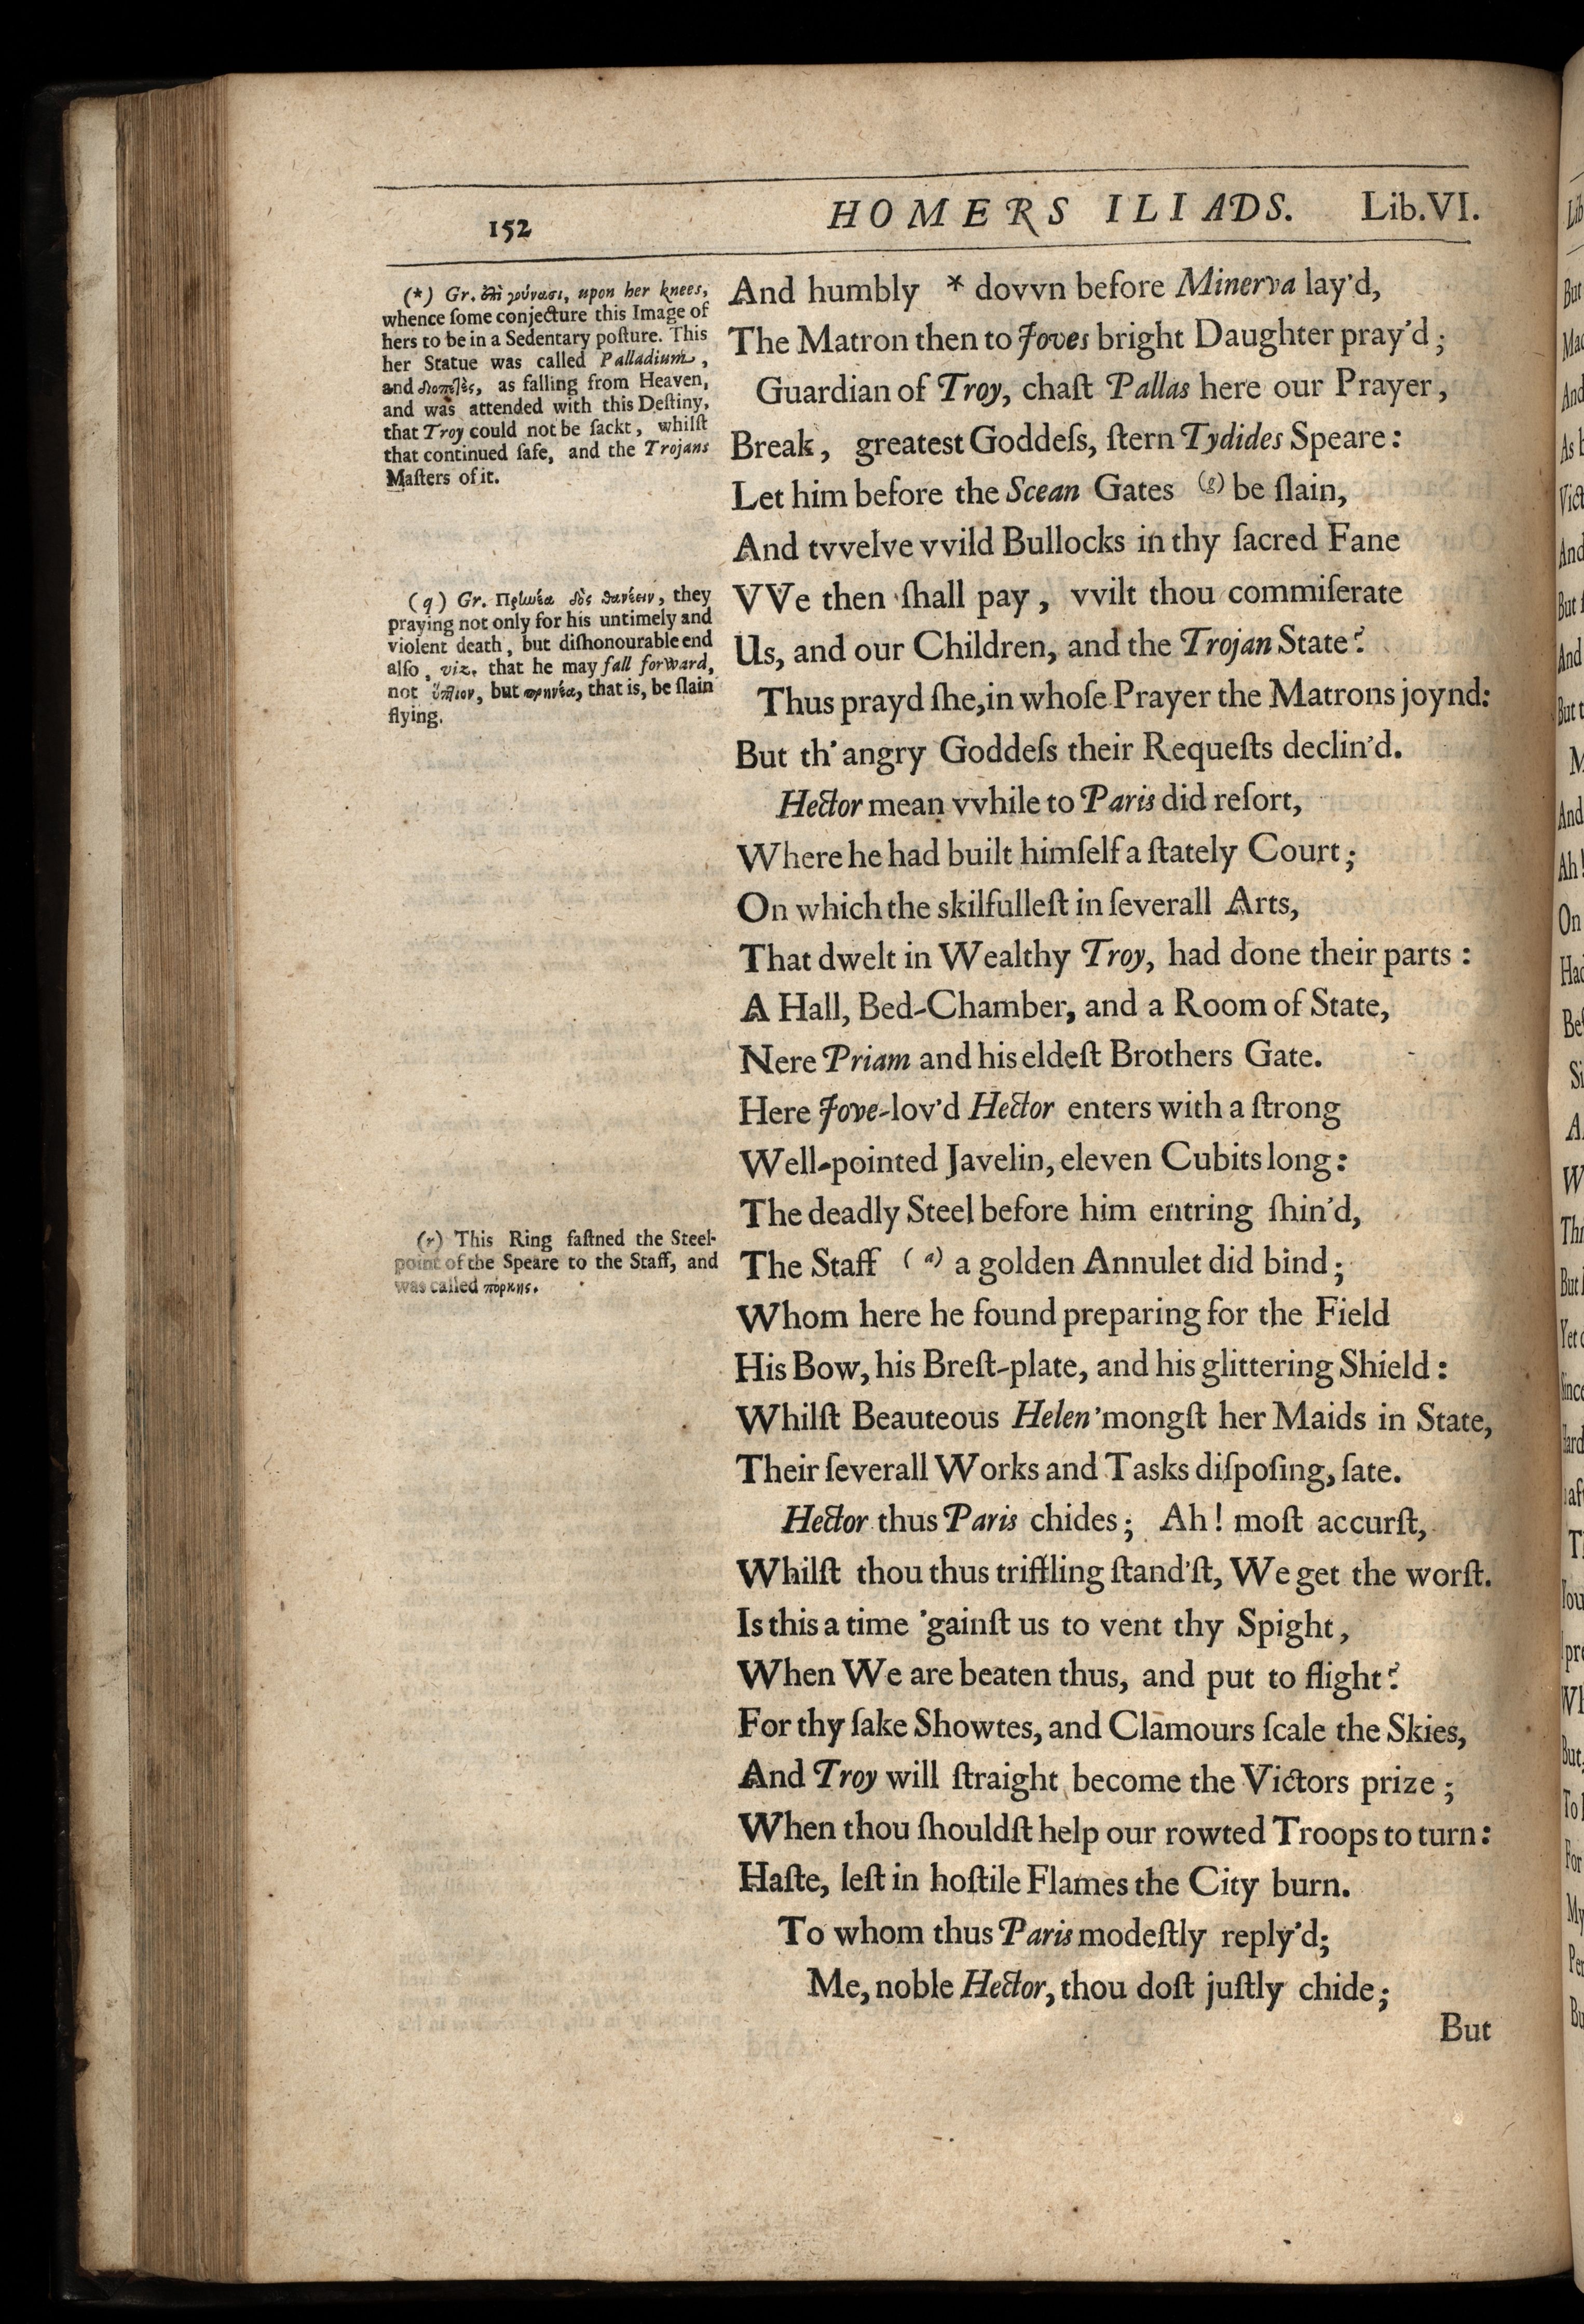 152 HOMERS ILIADS. Lib.VI.
(*) Gr. ἐπὶ γούνασι, upon her knees,
whence ſome conjecture this Image of
hers to be in a Sedentary poſture. This
her Statue was called Palladium,
and διοπετὲς, as falling from Heaven,
and was attended with this Deſtiny,
that Troy could not be ſackt, whilſt
that continued ſafe, and the Trojans
Maſters of it.
(q) Gr. Πρηνέα δὸς πεσέειν, they
praying not only for his untimely and
violent death, but diſhonourable end
alſo, viz. that he may fall forward,
not ὕπτιον, but πρηνέα, that is, be ſlain
flying.
(r) This Ring faſtned the Steel-
point of the Speare to the Staff, and
was called πόρκης.
And humbly * dovvn before Minerva lay'd,
The Matron then to Joves bright Daughter pray'd;
Guardian of Troy, chaſt Pallas here our Prayer,
Break, greatest Goddeſs, ſtern Tydides Speare:
Let him before the Scean Gates (g) be ſlain,
And tvvelve vvild Bullocks in thy ſacred Fane
VVe then ſhall pay, vvilt thou commiſerate
Us, and our Children, and the Trojan State?
Thus prayd ſhe, in whoſe Prayer the Matrons joynd:
But th' angry Goddeſs their Requeſts declin'd.
Hector mean vvhile to Paris did reſort,
Where he had built himſelf a ſtately Court;
On which the skilfulleſt in ſeverall Arts,
That dwelt in Wealthy Troy, had done their parts:
A Hall, Bed-Chamber, and a Room of State,
Nere Priam and his eldeſt Brothers Gate.
Here Jove-lov'd Hector enters with a ſtrong
Well-pointed Javelin, eleven Cubits long:
The deadly Steel before him entring ſhin'd,
The Staff (a) a golden Annulet did bind;
Whom here he found preparing for the Field
His Bow, his Breſt-plate, and his glittering Shield:
Whilſt Beauteous Helen 'mongſt her Maids in State,
Their ſeverall Works and Tasks diſpoſing, ſate.
Hector thus Paris chides; Ah! moſt accurſt,
Whilſt thou thus triffling ſtand'ſt, We get the worſt.
Is this a time 'gainſt us to vent thy Spight,
When We are beaten thus, and put to flight?
For thy ſake Showtes, and Clamours ſcale the Skies,
And Troy will ſtraight become the Victors prize;
When thou ſhouldſt help our rowted Troops to turn:
Haſte, leſt in hoſtile Flames the City burn.
To whom thus Paris modeſtly reply'd;
Me, noble Hector, thou doſt juſtly chide;
But